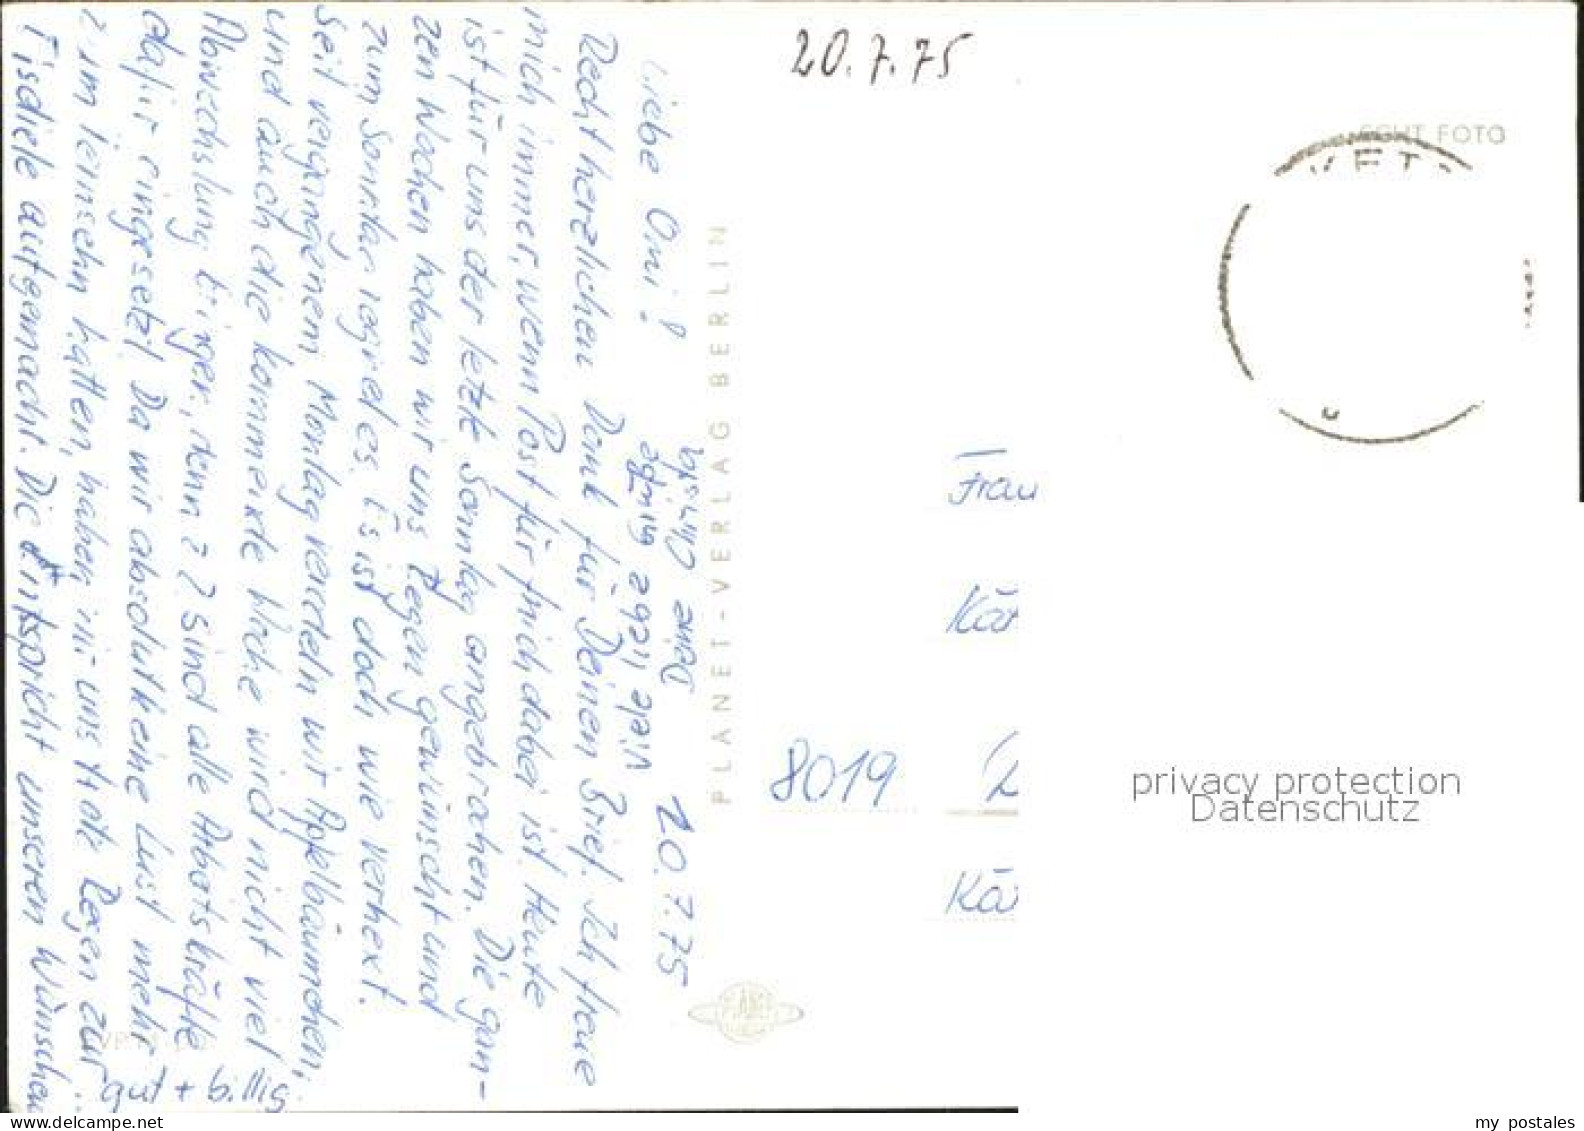 20.7.75
ECHT FOTO
20.7.75
Liebe Omi!
Recht herzlichen Dank für Deinen Brief. Ich freue
mich immer, wenn Post für mich dabei ist. Heute
ist für uns der letzte Sonntag angebrochen. Die gan-
zen Wochen haben wir uns Regen gewünscht und
zum Sonntag regnet es. Es ist doch wie verhext.
Seit vergangenem Montag veredeln wir Apfelbäumchen
und auch die kommende Woche wird nicht viel
Abwechslung bringen, denn sind alle Arbeitskräfte
dafür eingesetzt. Da wir absolut keine Lust mehr
zum Fernsehn hatten, haben wir uns trotz Regen zur
Eisdiele aufgemacht. Die Entspricht unseren Wünschen
gut + billig
viele liebe Grüße
Deine Christa
PLANET-VERLAG BERLIN
Frau
Kät
8019 D
Kä
privacy protection
Datenschutz
my postales